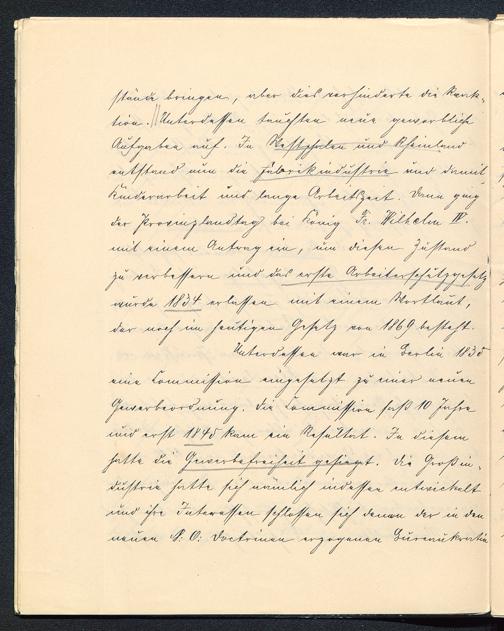 stände bringen, aber dies verhinderte die Reak-
tion. || Unterdessen tauchten neue gewerbliche
Aufgaben auf. In Westfalen und Rheinland
entstand nun die Fabrikindustrie und damit
Kinderarbeit und lange Arbeitszeit. Dann ging
der Provinziallandtag bei König Fr. Wilhelm IV.
mit einem Antrag ein, um diesen Zustand
zu verbessern und das erste Arbeiterschutzgesetz
wurde 1834 erlassen mit einem Wortlaut,
der noch im heutigen Gesetz von 1869 besteht.
Unterdessen war in Berlin 1835
eine Commission eingesetzt zu einer neuen
Gewerbeordnung. Die Commission saß 10 Jahre
und erst 1845 kam ein Resultat. In diesem
hatte die Gewerbefreiheit gesiegt. Die Großin-
dustrie hatte sich nämlich indessen entwickelt
und ihre Interessen schlossen sich denen der in den
neuen N. O: Doctrinen erzogenen Bureaukratie